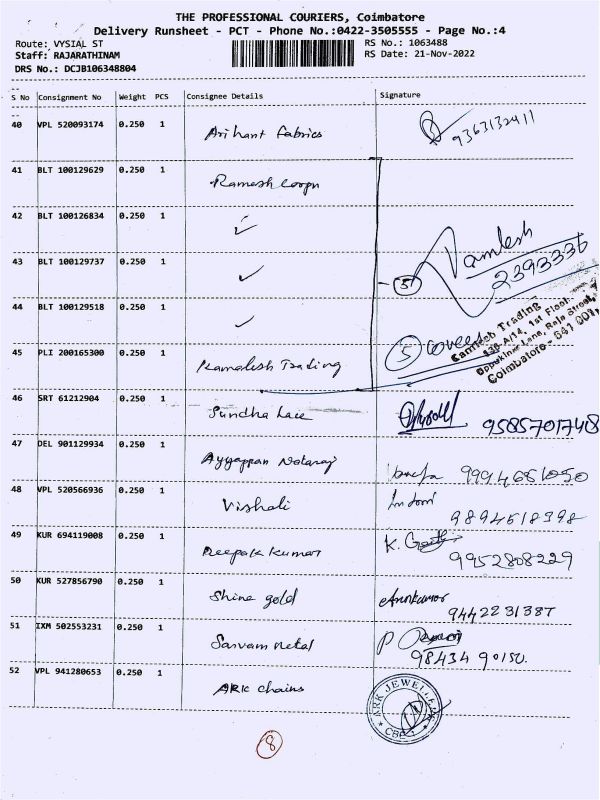 THE PROFESSIONAL COURIERS, Coimbatore
Delivery Runsheet - PCT - Phone No.:0422-3505555 - Page No.:4
Route: VYSIAL ST
RS No.: 1063488
Staff: RAJARATHINAM
RS Date: 21-Nov-2022
DRS No.: DCJB106348804
S No Consignment No Weight PCS Consignee Details Signature
40 VPL 520093174 0.250 1 Arihant Fabrics 9363132411
41 BLT 100129629 0.250 1 Ramesh Corpn
42 BLT 100126834 0.250 1 ✓
43 BLT 100129737 0.250 1 ✓ 5 Kamlesh
2393336
44 BLT 100129518 0.250 1 ✓
5 covers
Kamlesh Trading
136-A/14, 1st Floor
Lane, Raja Street,
Coimbatore - 641 001
45 PLI 200165300 0.250 1 Kamalesh Trading
46 SRT 61212904 0.250 1 Sundha Lace 9585701748
47 DEL 901129934 0.250 1 Ayyappan Nataraj 9994681050
48 VPL 520566936 0.250 1 Vishali
9894518998
49 KUR 694119008 0.250 1 Deepak Kumar K.
9952808229
50 KUR 527856790 0.250 1 Shine gold Arunkumar
9442231387
51 IXM 502553231 0.250 1 Sarvam metal P
98434 90150.
52 VPL 941280653 0.250 1 ARK chains
ARK JEWELLERS
CBE-1
8